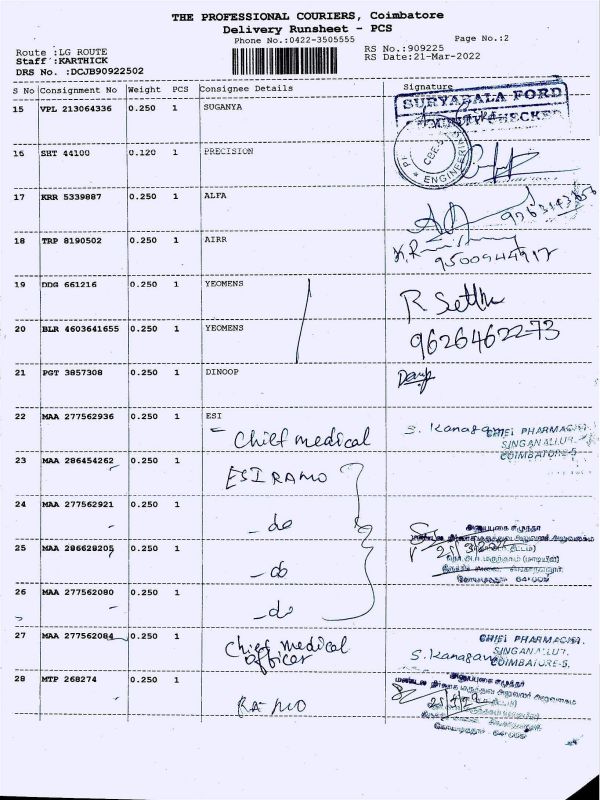 THE PROFESSIONAL COURIERS, Coimbatore
Delivery Runsheet - PCS
Phone No.:0422-3505555
Page No.:2
Route :LG ROUTE
RS No.:909225
Staff :KARTHICK
RS Date:21-Mar-2022
DRS No. :DCJB90922502
S No Consignment No Weight PCS Consignee Details Signature
15 VPL 213064336 0.250 1 SUGANYA
SURYABALA FORD
16 SHT 44100 0.120 1 PRECISION
ENGINEERING
17 KRR 5339887 0.250 1 ALFA
18 TRP 8190502 0.250 1 AIRR
K.R
19 DDG 661216 0.250 1 YEOMENS
20 BLR 4603641655 0.250 1 YEOMENS 9626462273
21 PGT 3857308 0.250 1 DINOOP
22 MAA 277562936 0.250 1 ESI
Chief medical
S. Kanaga
CHIEF PHARMACIST.
SINGANALLUR.
COIMBATORE-5.
23 MAA 286454262 0.250 1
ESI RAMO
24 MAA 277562921 0.250 1
- do
25 MAA 286628205 0.250 1
- do
26 MAA 277562080 0.250 1
- do
27 MAA 277562084 0.250 1
Chief medical
officer
S. Kanaga
CHIEF PHARMACIST.
SINGANALLUR.
COIMBATORE-5.
28 MTP 268274 0.250 1
RAMO